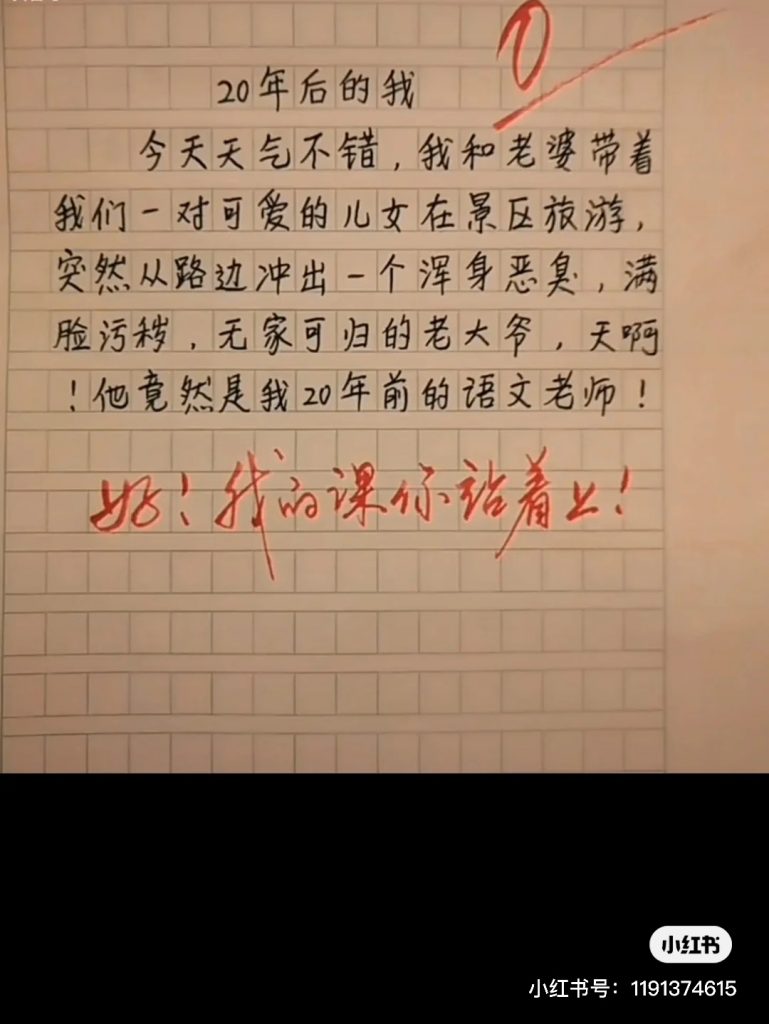 0
20年后的我
今天天气不错，我和老婆带着
我们一对可爱的儿女在景区旅游，
突然从路边冲出一个浑身恶臭，满
脸污秽，无家可归的老大爷，天啊
！他竟然是我20年前的语文老师！
好！我的课你站着上！
小红书
小红书号：1191374615